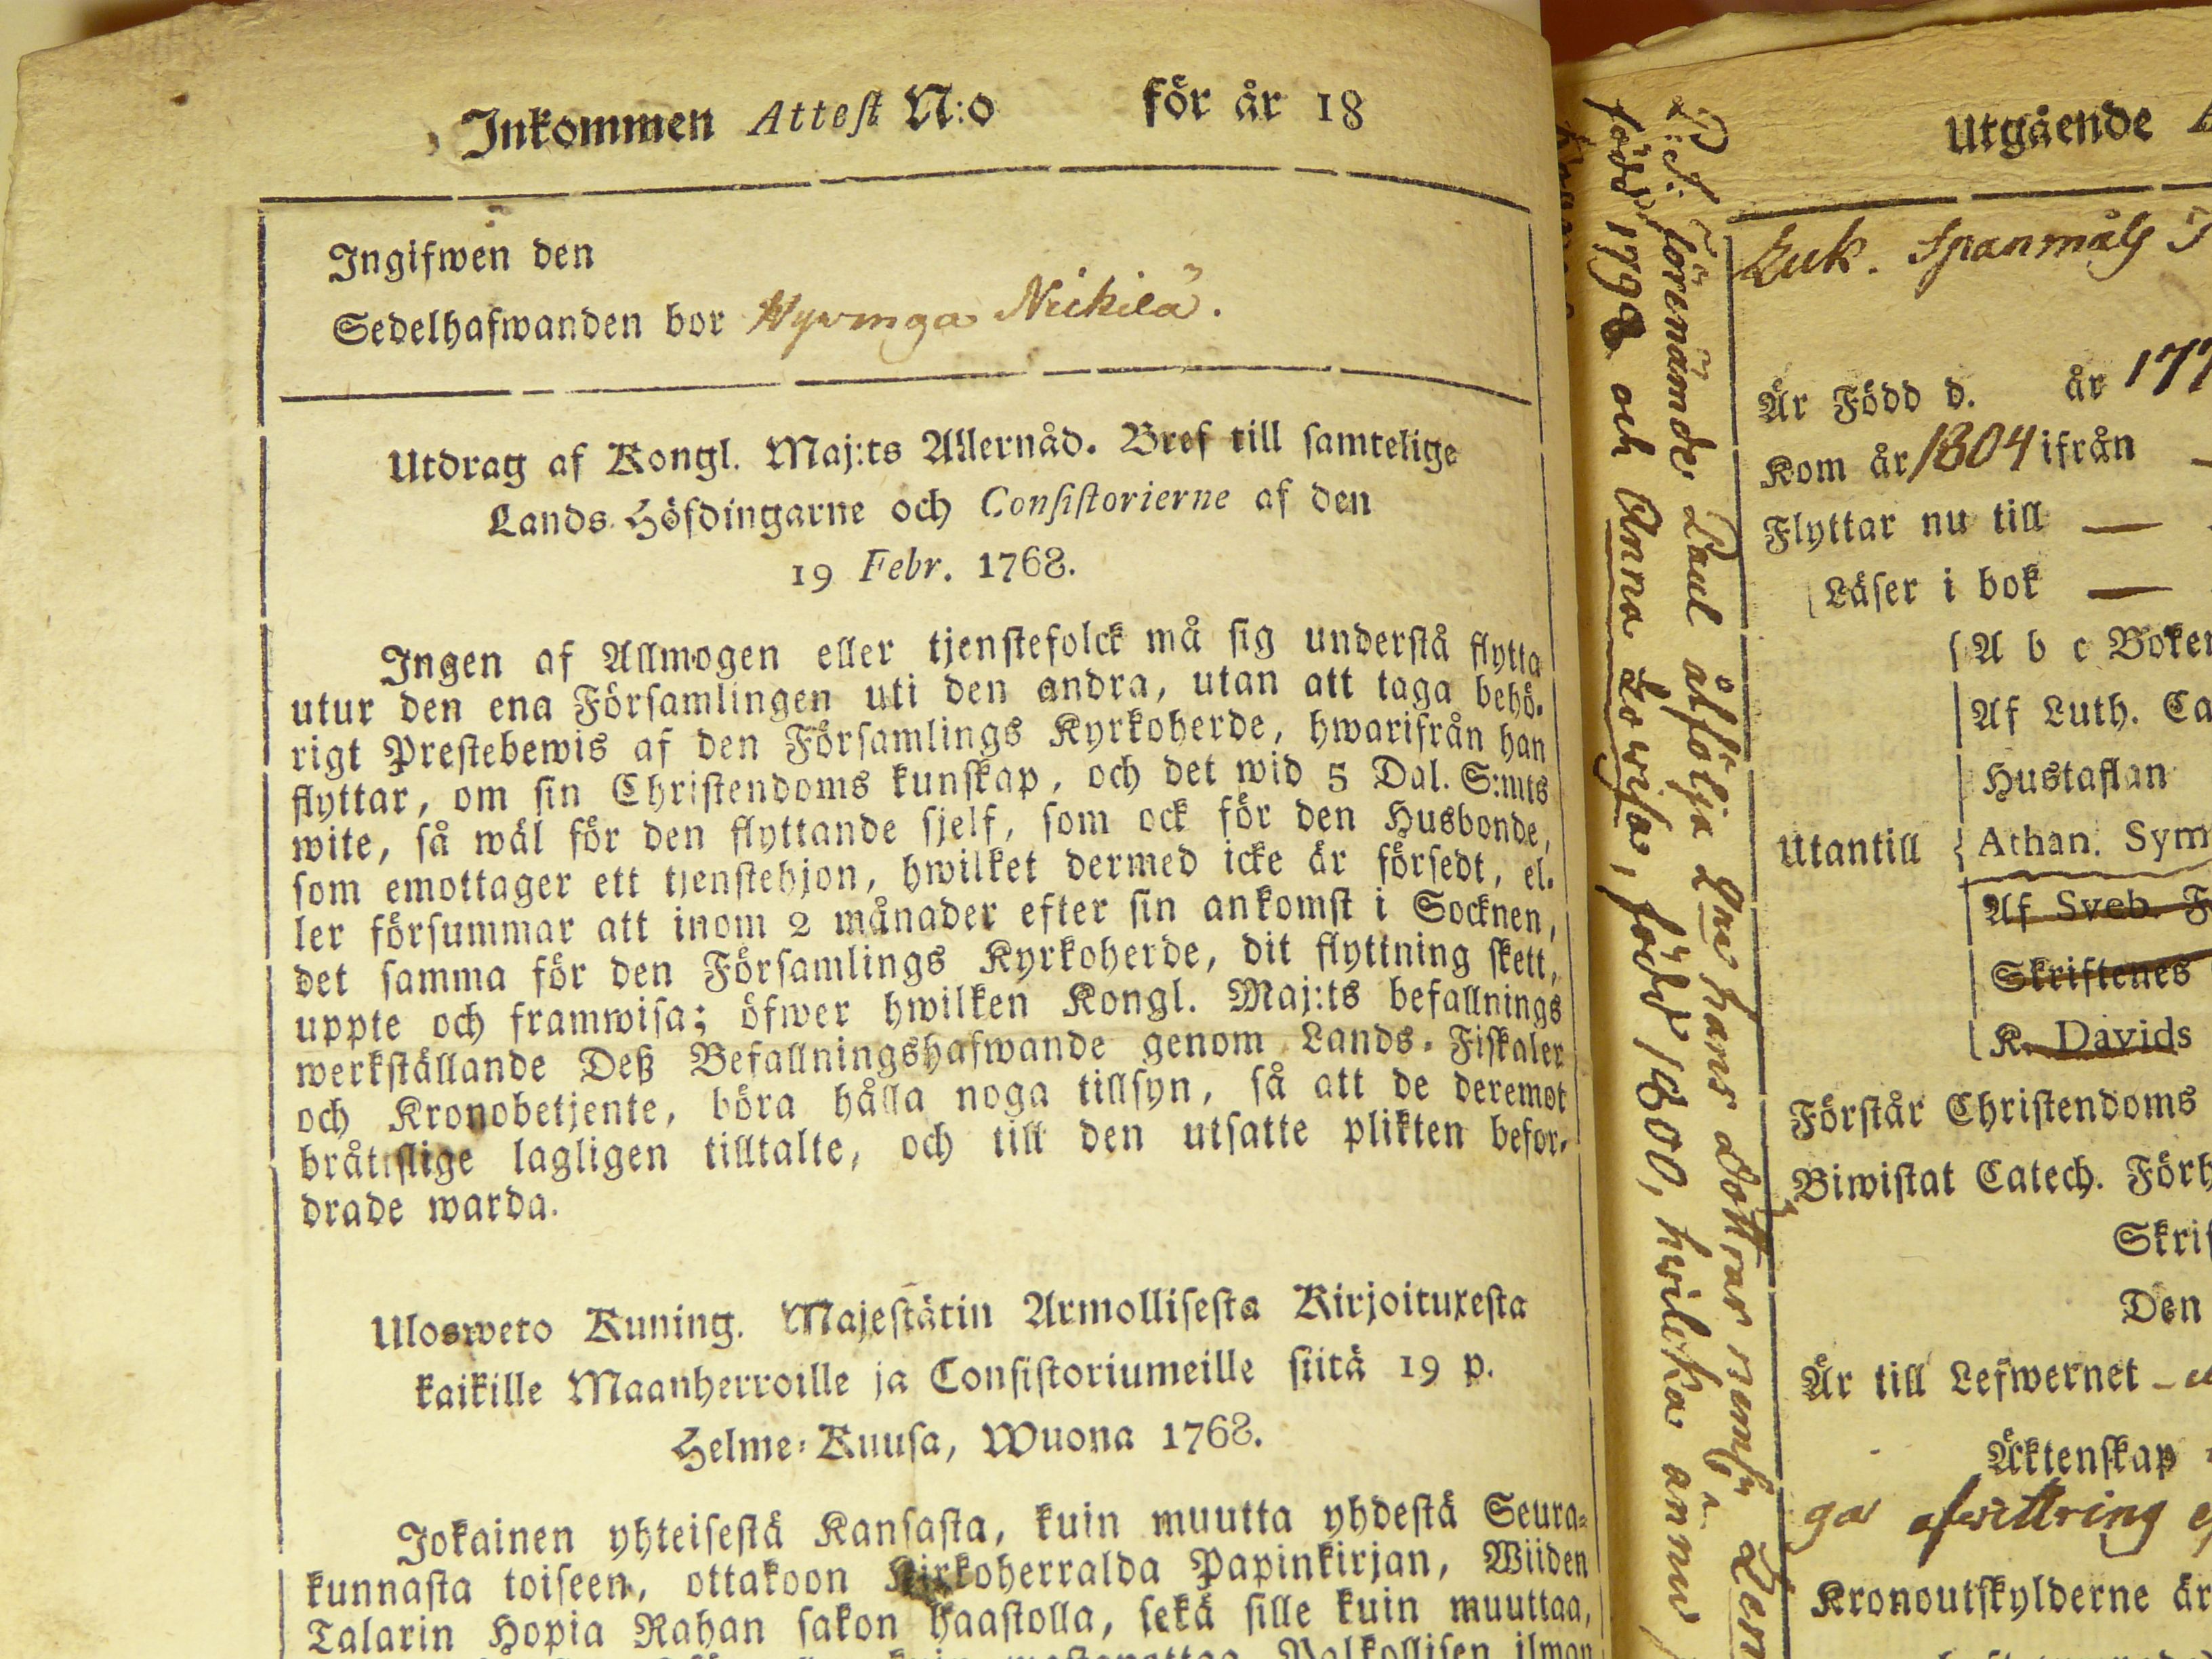 Inkommen Attest N:o för år 18
Ingifwen den
Sedelhafwanden bor Hyvinga Nickilä.
Utdrag af Kongl. Maj:ts Allernåd. Bref till samtelige
Lands-Höfdingarne och Consistorierne af den
19 Febr. 1768.
Ingen af Allmogen eller tjenstefolck må sig understå flytta
utur den ena Församlingen uti den andra, utan att taga behö-
rigt Prestebewis af den Församlings Kyrkoherde, hwarifrån han
flyttar, om sin Christendoms kunskap, och det wid 5 Dal. S:mts
wite, så wäl för den flyttande sjelf, som ock för den Husbonde,
som emottager ett tjenstehjon, hwilket dermed icke är försedt, el-
ler försummar att inom 2 månader efter sin ankomst i Socknen,
det samma för den Församlings Kyrkoherde, dit flyttning skett,
uppte och framwisa; öfwer hwilken Kongl. Maj:ts befallnings
werkställande Deß Befallningshafwande genom Lands-Fiskaler
och Kronobetjente, böra hålla noga tillsyn, så att de deremot
bråtslige lagligen tilltalte, och till den utsatte plikten befor-
drade warda.
Ulosweto Kuning. Majestätin Armollisesta Kirjoituxesta
kaikille Maanherroille ja Consistoriumeille siitä 19 p.
Helme-Kuusa, Wuona 1768.
Jokainen yhteisestä Kansasta, kuin muutta yhdestä Seura-
kunnasta toiseen, ottakoon Kirkoherralda Papinkirjan, Wiiden
Talarin Hopia Rahan sakon haastolla, sekä sille kuin muuttaa,
Palkollisen ilman
förenämnde Paul åtfölja 2ne hans döttrar
född 1798 och Anna Lovisa, född 1800, hwilka ännu
Utgående
Luk. Spanmåls
Är Född d. år 177
Kom år 1804 ifrån —
Flyttar nu till —
Läser i bok —
A b c Boken
Af Luth. Ca
Hustaflan
Utantill
Athan. Sym
Af Sveb. F
Skriftenes
K. Davids
Förstår Christendoms
Biwistat Catech. Förh
Skrif
Den
Är till Lefwernet
Äktenskap
afwittring
Kronoutskylderne är